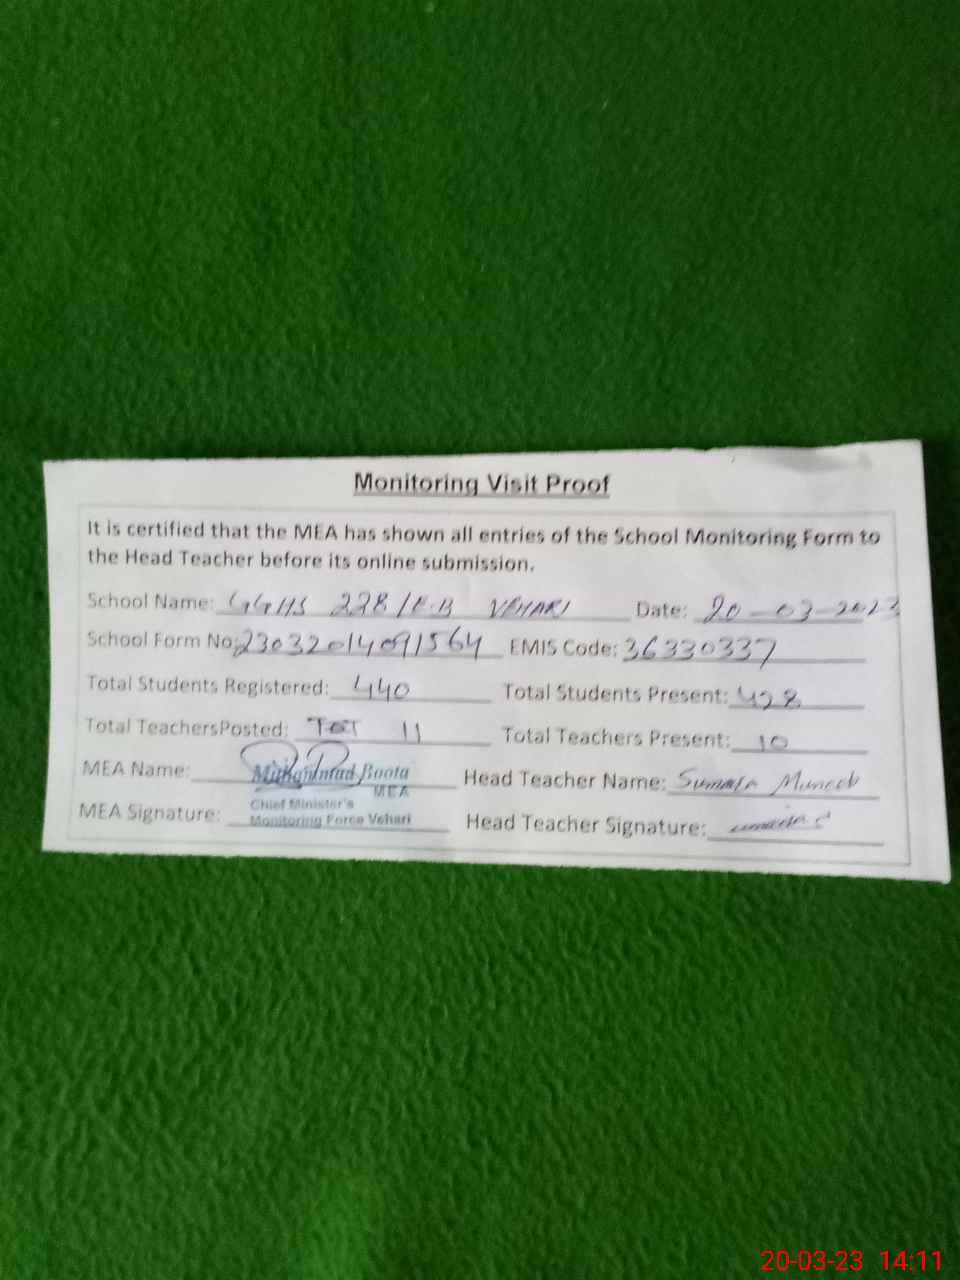 Monitoring Visit Proof
It is certified that the MEA has shown all entries of the School Monitoring Form to
the Head Teacher before its online submission.
School Name: GGHS 228/E.B VEHARI Date: 20-03-2023
School Form No: 23032014091564 EMIS Code: 36330337
Total Students Registered: 440 Total Students Present: 428
Total TeachersPosted: TOT 11 Total Teachers Present: 10
MEA Name: Muhammad Boota Head Teacher Name: Sumaira Muneeb
MEA
MEA Signature: Chief Minister's
Monitoring Force Vehari Head Teacher Signature:
20-03-23 14:11